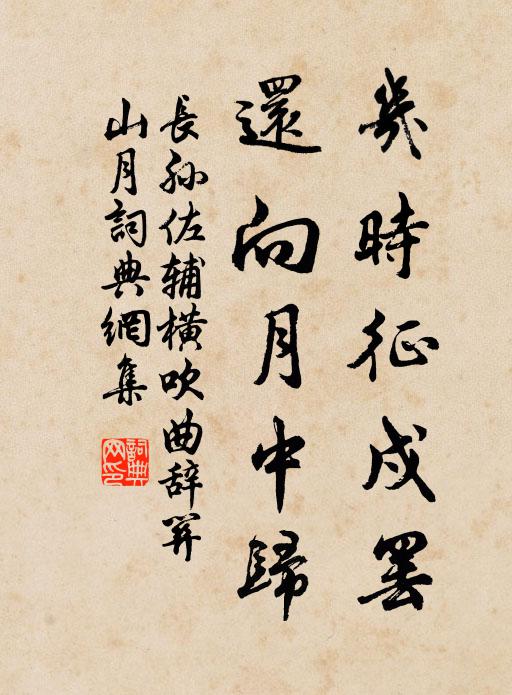 幾時征戍罷
還向月中歸
長孫佐輔橫吹曲辞關
山月詞典網集
詞典网印